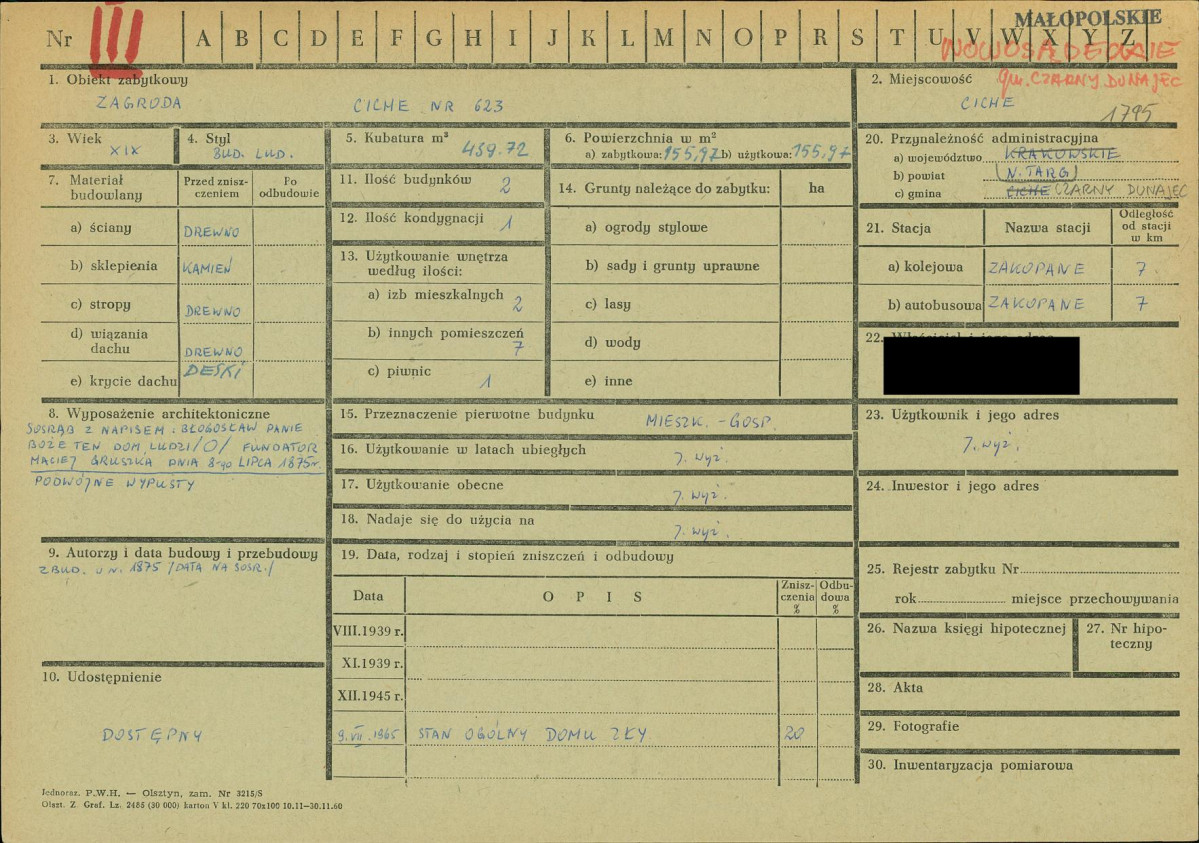 Nr III A B C D E F G H I J K L M N O P R S T U V W X Y Z
MAŁOPOLSKIE
NOWOSĄDECKIE
gm. CZARNY DUNAJEC
1. Obiekt zabytkowy
ZAGRODA CICHE NR 623
2. Miejscowość
CICHE
1795
3. Wiek
XIX
4. Styl
BUD. LUD.
5. Kubatura m³
459.72
6. Powierzchnia w m²
a) zabytkowa: 155,97 b) użytkowa: 155,97
7. Materiał budowlany
Przed zniszczeniem
Po odbudowie
a) ściany DREWNO
b) sklepienia KAMIEŃ
c) stropy DREWNO
d) wiązania dachu DREWNO
e) krycie dachu DESKI
8. Wyposażenie architektoniczne
SOSRĄB Z NAPISEM: BŁOGOSŁAW PANIE
BOŻE TEN DOM, LUDZI /O/ FUNDATOR
MACIEJ GRUSZKA DNIA 8-go LIPCA 1875r.
PODWÓJNE WYPUSTY
9. Autorzy i data budowy i przebudowy
ZBUD. W R. 1875 /DATA NA SOSR./
10. Udostępnienie
DOSTĘPNY
11. Ilość budynków 2
12. Ilość kondygnacji 1
13. Użytkowanie wnętrza według ilości:
a) izb mieszkalnych 2
b) innych pomieszczeń 7
c) piwnic 1
14. Grunty należące do zabytku: ha
a) ogrody stylowe
b) sady i grunty uprawne
c) lasy
d) wody
e) inne
15. Przeznaczenie pierwotne budynku MIESZK. - GOSP.
16. Użytkowanie w latach ubiegłych J. wyż.
17. Użytkowanie obecne J. wyż.
18. Nadaje się do użycia na J. wyż.
19. Data, rodzaj i stopień zniszczeń i odbudowy
Data O P I S Zniszczenia % Odbudowa %
VIII.1939 r.
XI.1939 r.
XII.1945 r.
9.VII.1965 STAN OGÓLNY DOMU ZŁY 20
20. Przynależność administracyjna
a) województwo KRAKOWSKIE
b) powiat (N. TARG)
c) gmina CICHE CZARNY DUNAJEC
21. Stacja Nazwa stacji Odległość od stacji w km
a) kolejowa ZAKOPANE 7
b) autobusowa ZAKOPANE 7
22. Właściciel i jego adres
23. Użytkownik i jego adres
J. wyż.
24. Inwestor i jego adres
25. Rejestr zabytku Nr
rok miejsce przechowywania
26. Nazwa księgi hipotecznej
27. Nr hipoteczny
28. Akta
29. Fotografie
30. Inwentaryzacja pomiarowa
Jednoraz. P.W.H. — Olsztyn, zam. Nr 3215/S
Olszt. Z. Graf. Lz. 2485 (30 000) karton V kl. 220 70x100 10.11—30.11.60